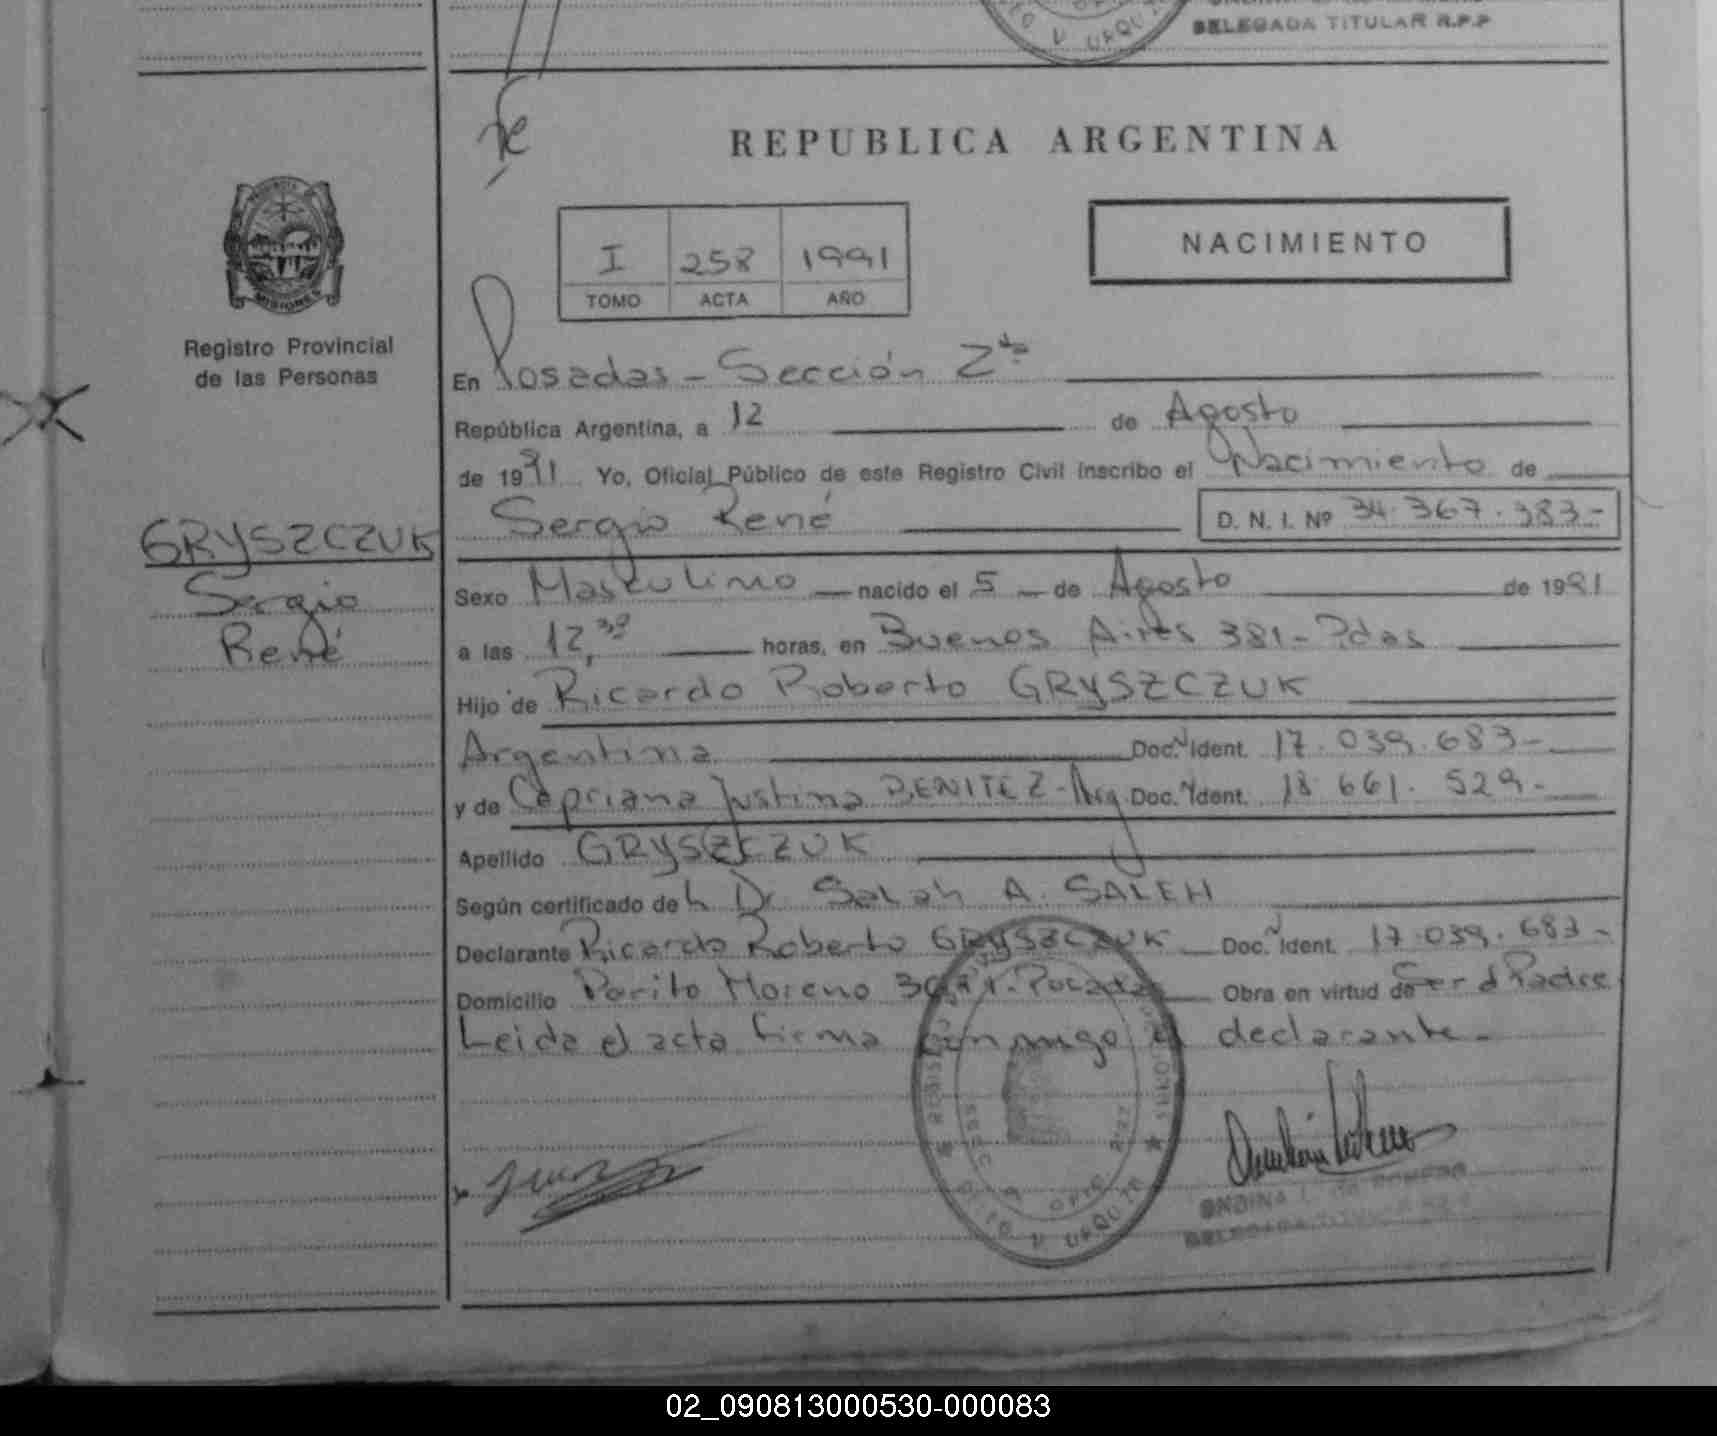 DELEGADA TITULAR R.P.P
REPUBLICA ARGENTINA
NACIMIENTO
I 258 1991
TOMO ACTA AÑO
MISIONES
Registro Provincial
de las Personas
En Posadas - Sección 2da
República Argentina, a 12 de Agosto
de 1991 Yo, Oficial Público de este Registro Civil inscribo el Nacimiento de
Sergio René D. N. I. Nº 34.367.383-
GRYSZCZUK
Sergio
René
Sexo Masculino nacido el 5 de Agosto de 1991
a las 12,30 horas, en Buenos Aires 381 - Pdas
Hijo de Ricardo Roberto GRYSZCZUK
Argentina Doc. Ident. 17.039.683-
y de Capriana Justina BENITEZ - Arg Doc. Ident. 18.661.529-
Apellido GRYSZCZUK
Según certificado de Dr Salah A. SALEH
Declarante Ricardo Roberto GRYSZCZUK Doc. Ident. 17.039.683-
Domicilio Perito Moreno Posadas Obra en virtud de Ser el Padre
Leida el acta firma conmigo el declarante.-
DELEGADA TITULAR
02_090813000530-000083